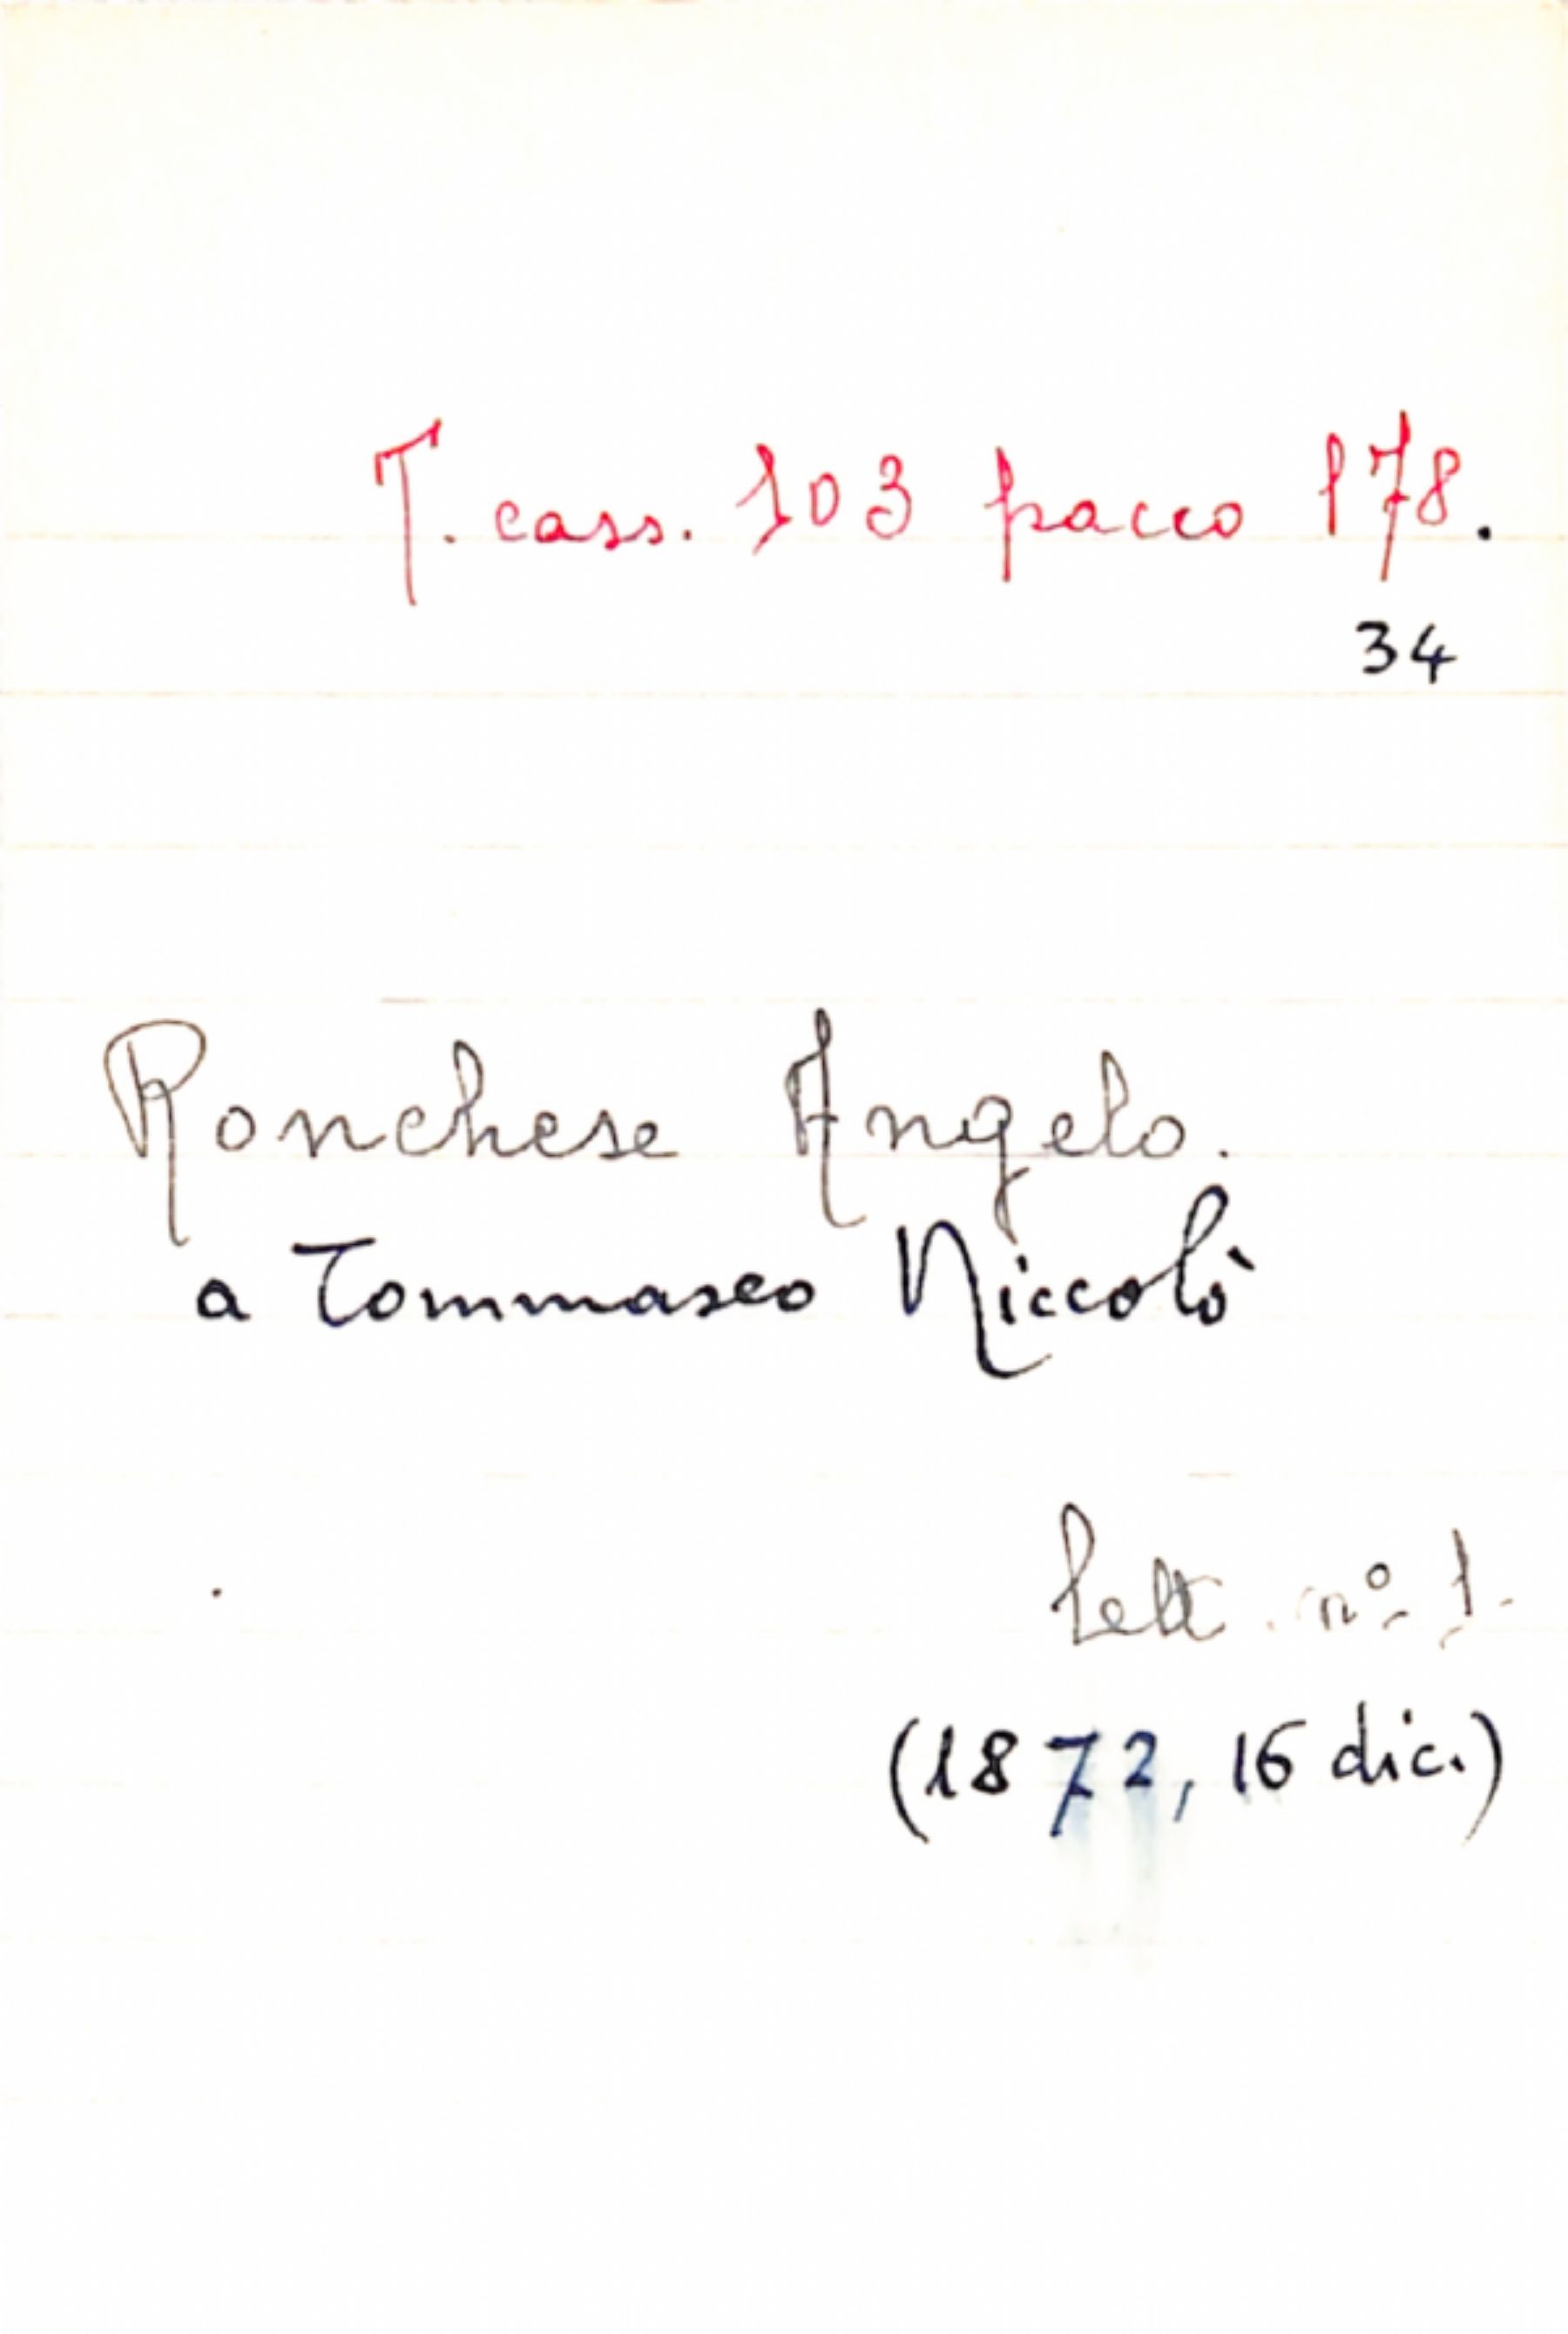 T. cass. 103 pacco 178.
34
Ronchese Angelo.
a Tommaseo Niccolò
Lett. nº 1.
(1872, 16 dic.)